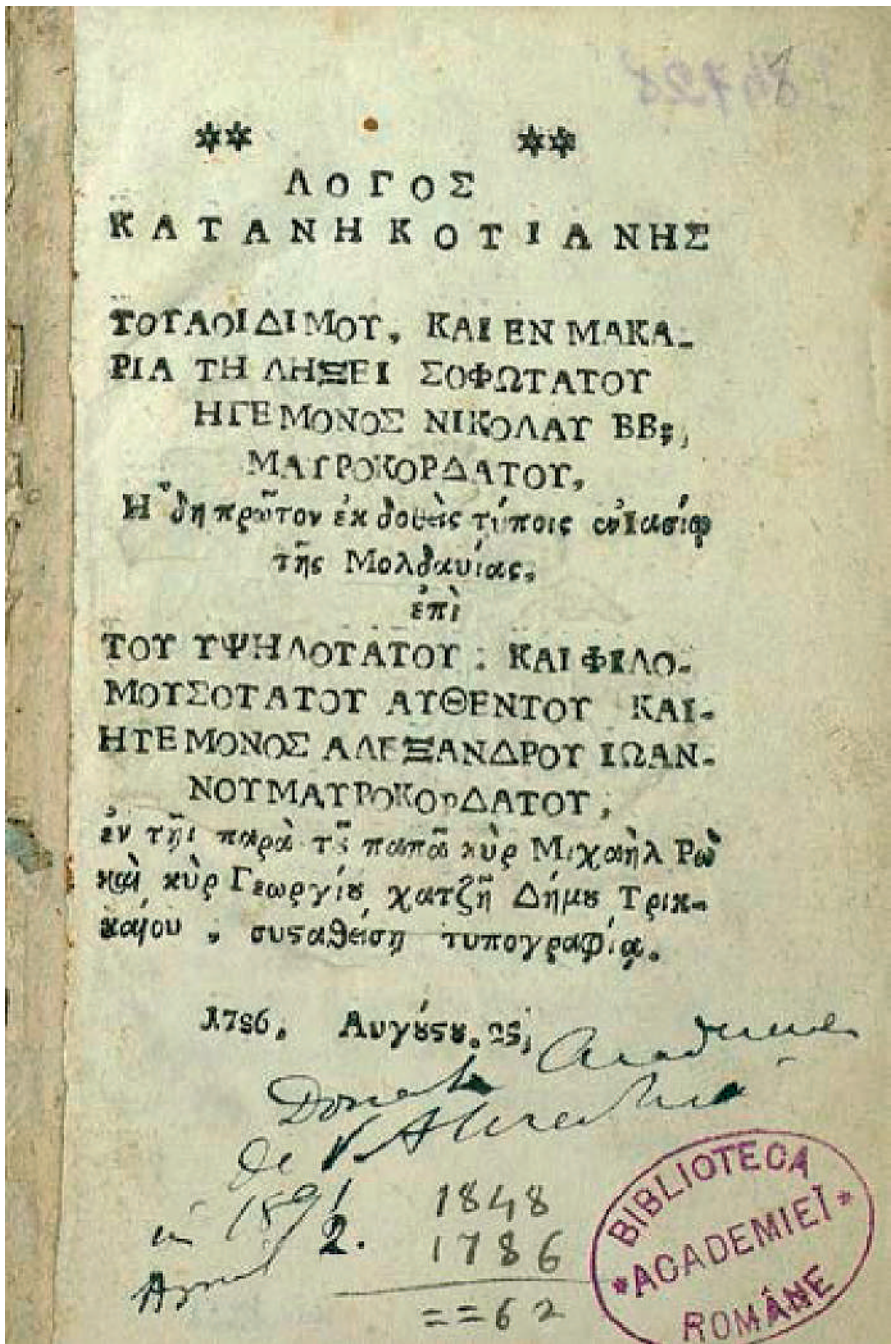 ** **
ΛΟΓΟΣ
ΚΑΤΑ ΝΗΚΟΤΙΑΝΗΣ
ΤΟΥ ΑΟΙΔΙΜΟΥ, ΚΑΙ ΕΝ ΜΑΚΑ-
ΡΙΑ ΤΗ ΛΗΞΕΙ ΣΟΦΩΤΑΤΟΥ
ΗΓΕΜΟΝΟΣ ΝΙΚΟΛΑΥ ΒΒ:,
ΜΑΥΡΟΚΟΡΔΑΤΟΥ,
Ἤδη πρῶτον ἐκδοθεὶς τύποις ἐν Ιασίῳ
τῆς Μολδαυίας,
ἐπὶ
ΤΟΥ ΥΨΗΛΟΤΑΤΟΥ: ΚΑΙ ΦΙΛΟ-
ΜΟΥΣΟΤΑΤΟΥ ΑΥΘΕΝΤΟΥ ΚΑΙ-
ΗΓΕΜΟΝΟΣ ΑΛΕΞΑΝΔΡΟΥ ΙΩΑΝ-
ΝΟΥ ΜΑΥΡΟΚΟΡΔΑΤΟΥ,
ἐν τῆι παρὰ τȣ͂ παπᾶ κὺρ Μιχαὴλ Ρω
καὶ κὺρ Γεωργίȣ χατζῆ Δήμȣ Τρικ-
καίου, συϛαθείσῃ τυπογραφίᾳ.
1786, Αυγύϛȣ.
Donat
de V.
in 1891
2.
1848
1786
==62
BIBLIOTECA
*ACADEMIEĬ*
ROMÂNE